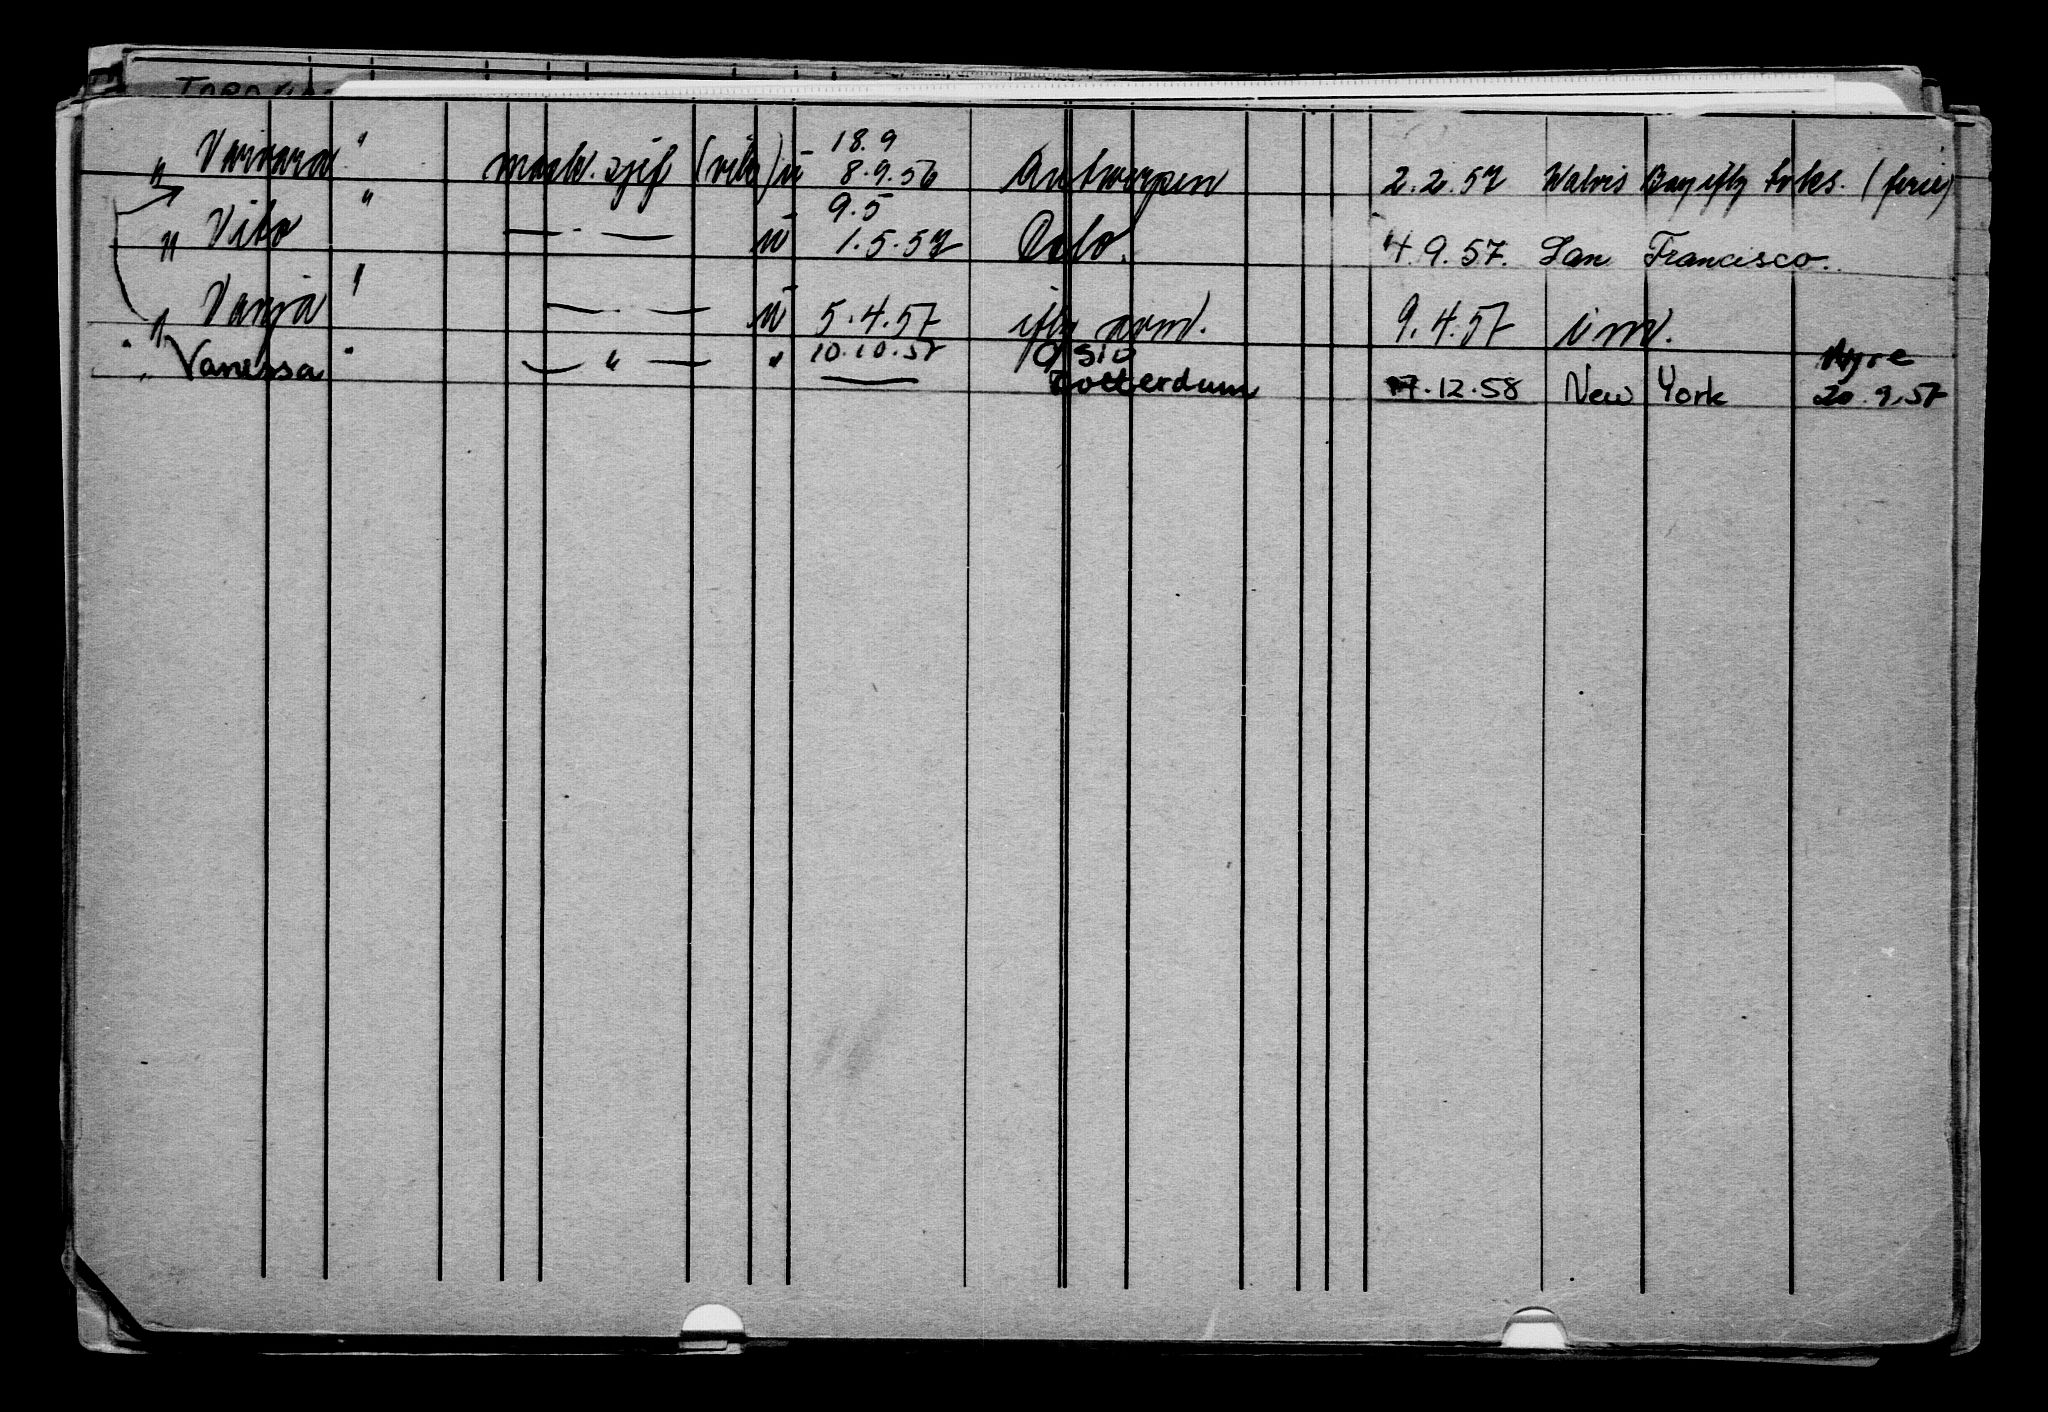 18.9
" Varvara " mask. sjef (vik) u 8.9.56 Antwerpen 2.2.57 Walvis Bay iflg tlks. (ferie)
" 9.5
" Vito — " — u 1.5.57 Oslo. 4.9.57. San Francisco.
" Vanja " — " — u 5.4.57 iflg arml. 9.4.57 iml.
" Vanessa " — " — " 10.10.57 Oslo Myre
Rotterdam 17.12.58 New York 20.9.57